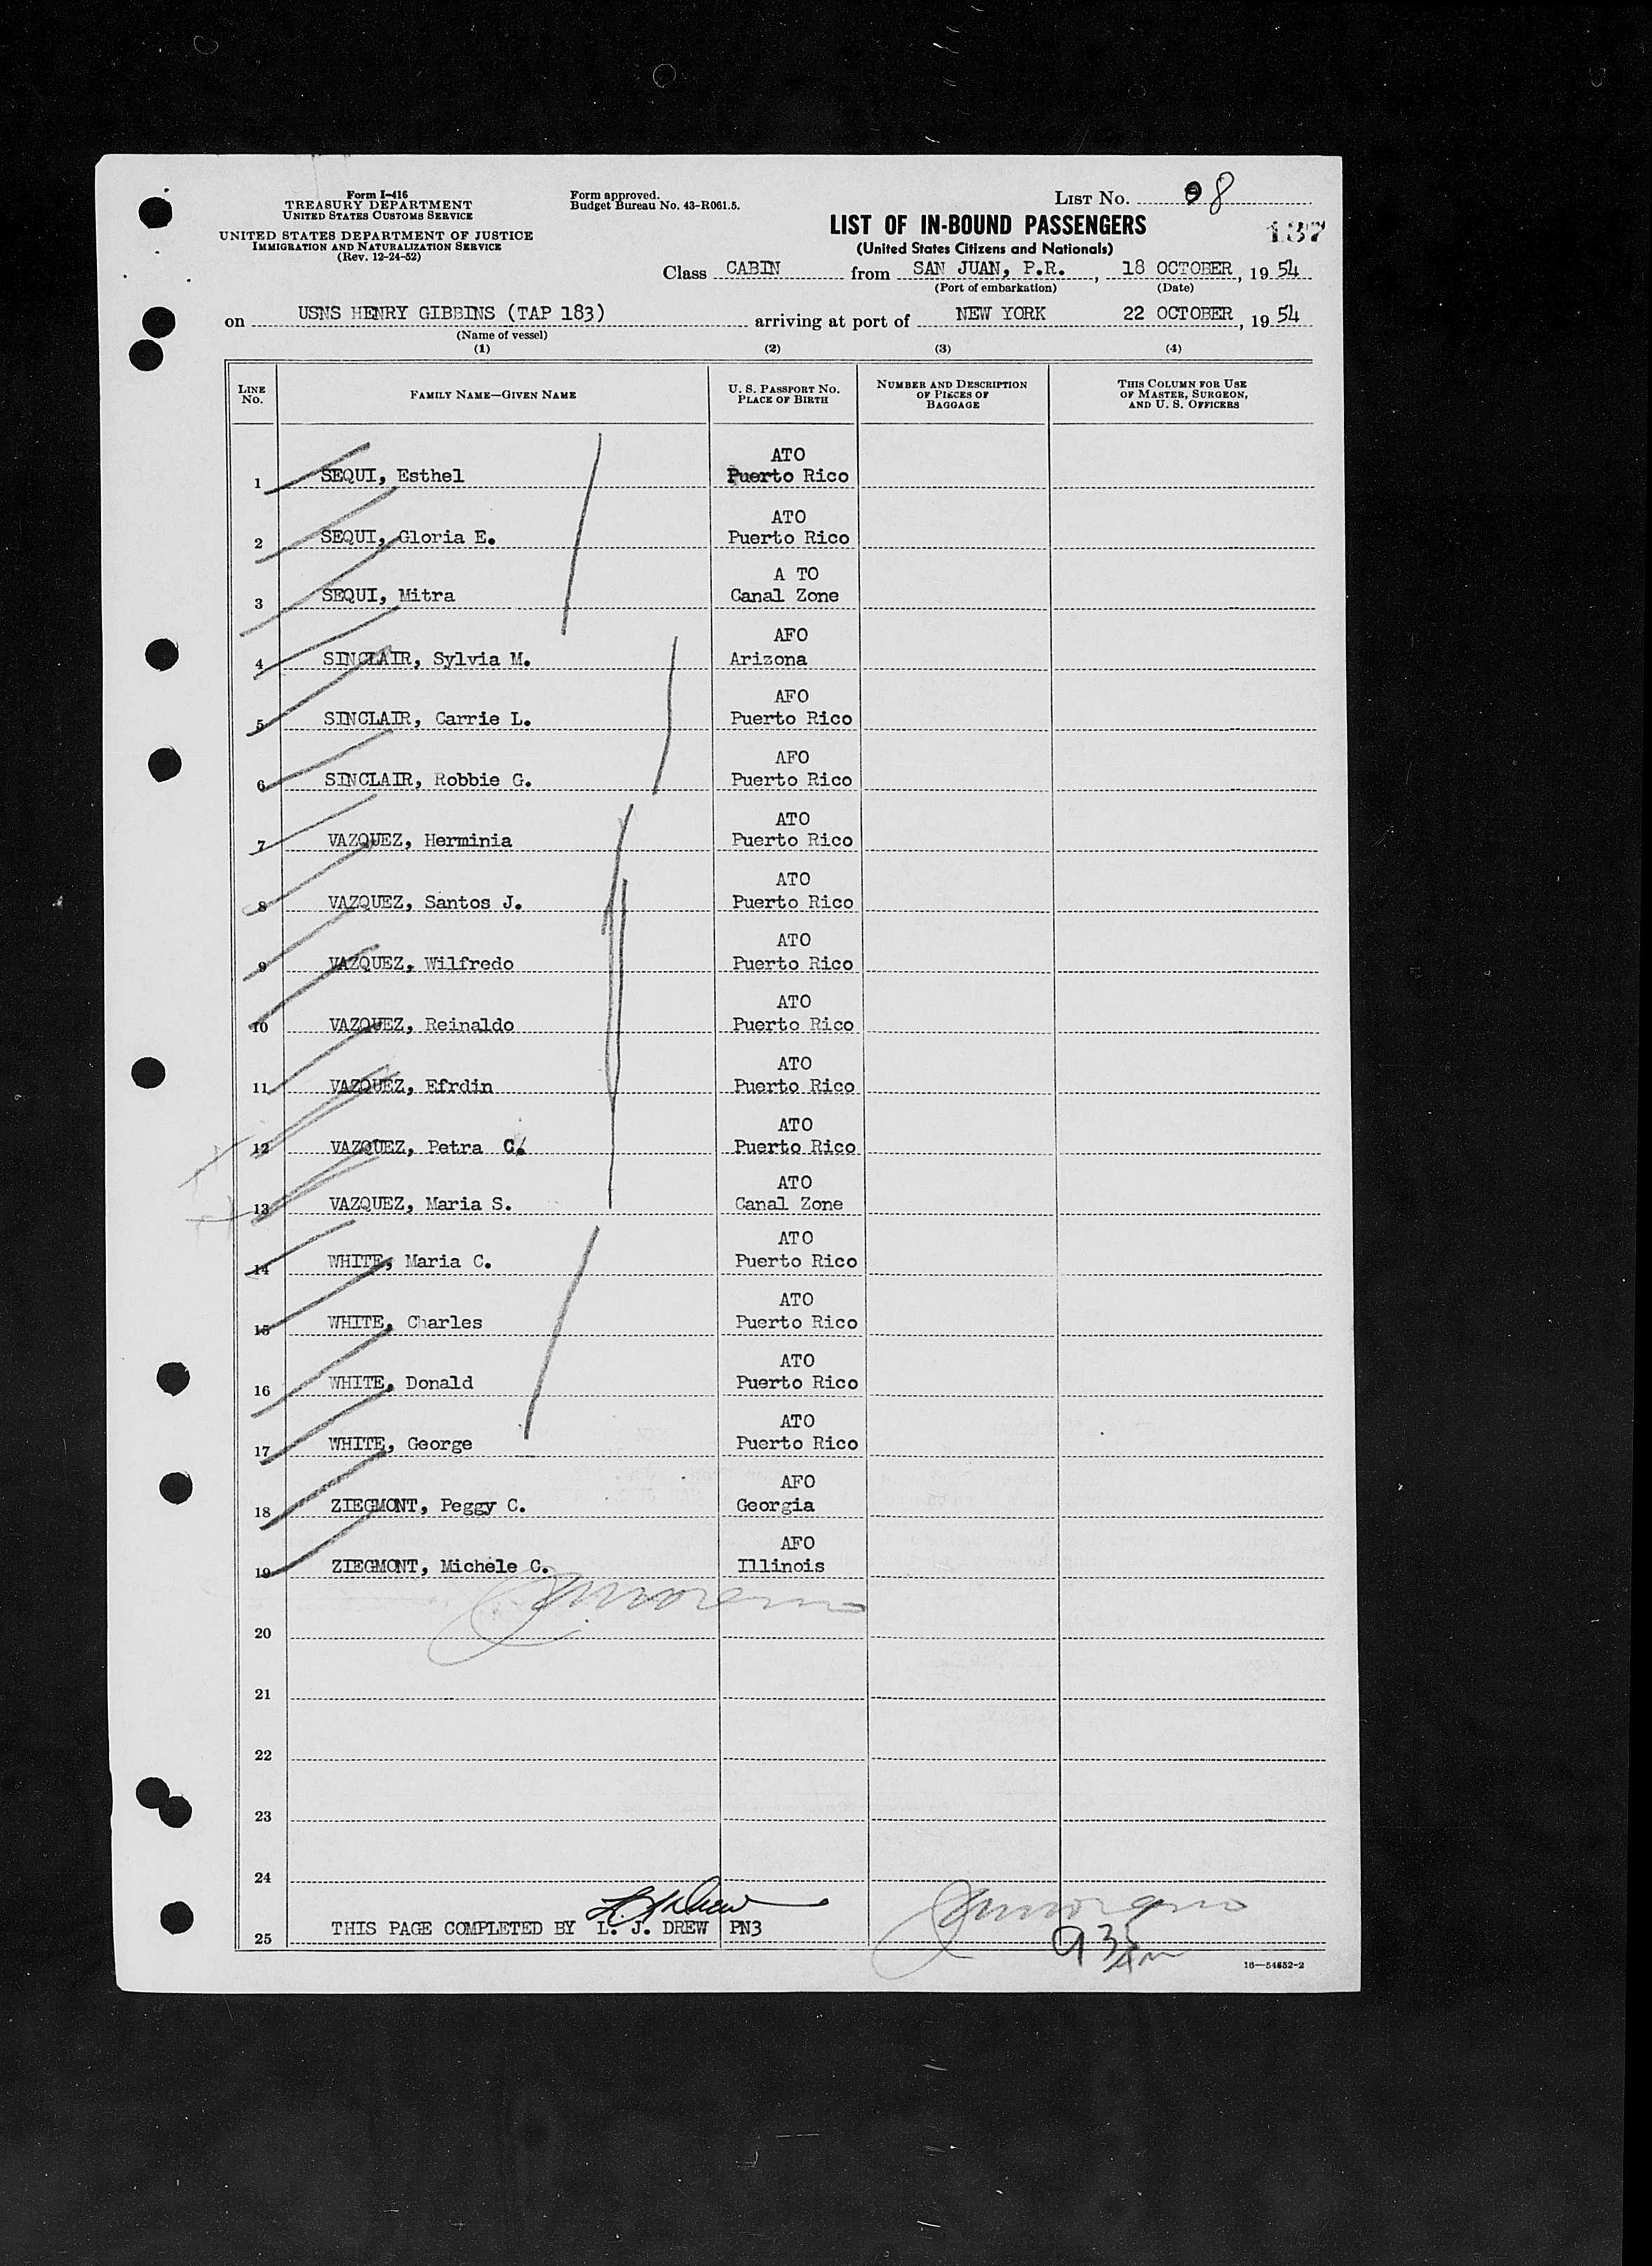 Form I-416
TREASURY DEPARTMENT
UNITED STATES CUSTOMS SERVICE
UNITED STATES DEPARTMENT OF JUSTICE
IMMIGRATION AND NATURALIZATION SERVICE
(Rev. 12-24-52)
Form approved.
Budget Bureau No. 43-R061.5.
LIST No. 8
LIST OF IN-BOUND PASSENGERS
137
(United States Citizens and Nationals)
Class CABIN from SAN JUAN, P.R., 18 OCTOBER, 1954
(Port of embarkation) (Date)
on USNS HENRY GIBBINS (TAP 183) arriving at port of NEW YORK 22 OCTOBER, 1954
(Name of vessel)
(1) (2) (3) (4)
LINE No. FAMILY NAME—GIVEN NAME U. S. PASSPORT NO. PLACE OF BIRTH NUMBER AND DESCRIPTION OF PIECES OF BAGGAGE THIS COLUMN FOR USE OF MASTER, SURGEON, AND U. S. OFFICERS
ATO
1 SEQUI, Esthel Puerto Rico
ATO
2 SEQUI, Gloria E. Puerto Rico
A TO
3 SEQUI, Mitra Canal Zone
AFO
4 SINCLAIR, Sylvia M. Arizona
AFO
5 SINCLAIR, Carrie L. Puerto Rico
AFO
6 SINCLAIR, Robbie G. Puerto Rico
ATO
7 VAZQUEZ, Herminia Puerto Rico
ATO
8 VAZQUEZ, Santos J. Puerto Rico
ATO
9 VAZQUEZ, Wilfredo Puerto Rico
ATO
10 VAZQUEZ, Reinaldo Puerto Rico
ATO
11 VAZQUEZ, Efrdin Puerto Rico
ATO
12 VAZQUEZ, Petra C. Puerto Rico
ATO
13 VAZQUEZ, Maria S. Canal Zone
ATO
14 WHITE, Maria C. Puerto Rico
ATO
15 WHITE, Charles Puerto Rico
ATO
16 WHITE, Donald Puerto Rico
ATO
17 WHITE, George Puerto Rico
AFO
18 ZIEGMONT, Peggy C. Georgia
AFO
19 ZIEGMONT, Michele C. Illinois
20
21
22
23
24
25 THIS PAGE COMPLETED BY L. J. DREW PN3
935 AM
16—54652-2